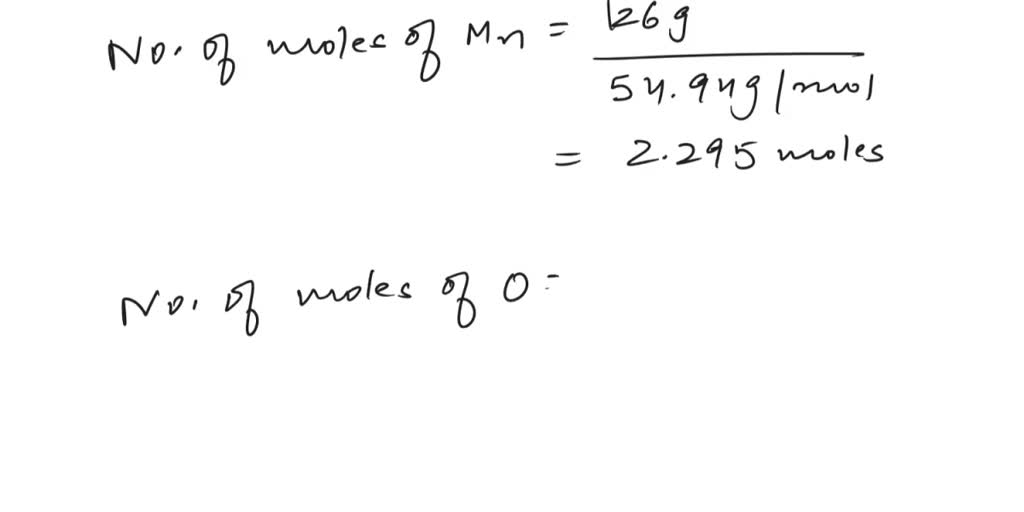 No. of moles of Mn = 126g
54.94g/mol
= 2.295 moles
No. of moles of O =